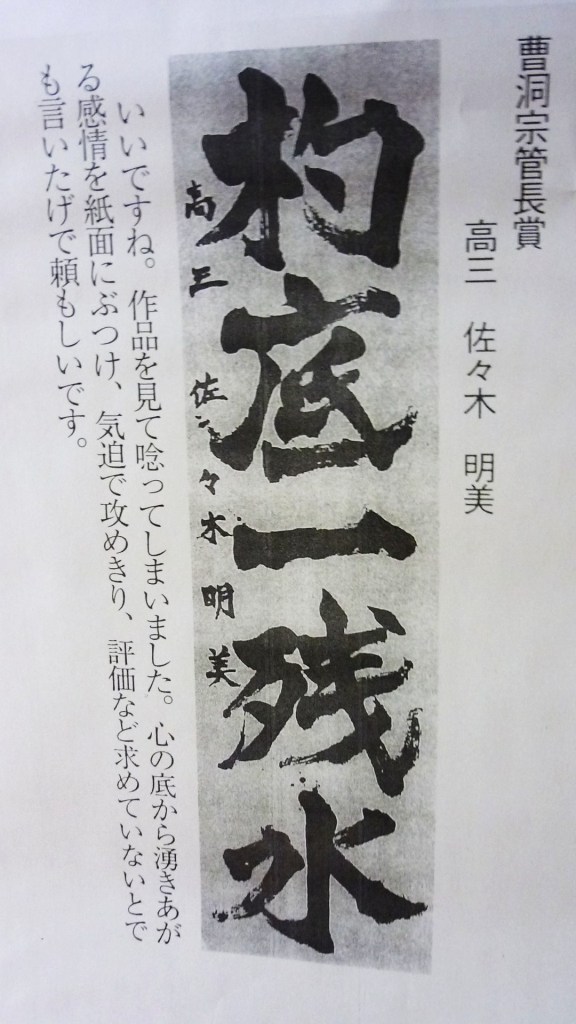 曹洞宗管長賞
高三 佐々木 明美
杓底一残水
高三 佐々木明美
いいですね。作品を見て唸ってしまいました。心の底から湧きあが
る感情を紙面にぶつけ、気迫で攻めきり、評価など求めていないとで
も言いたげで頼もしいです。